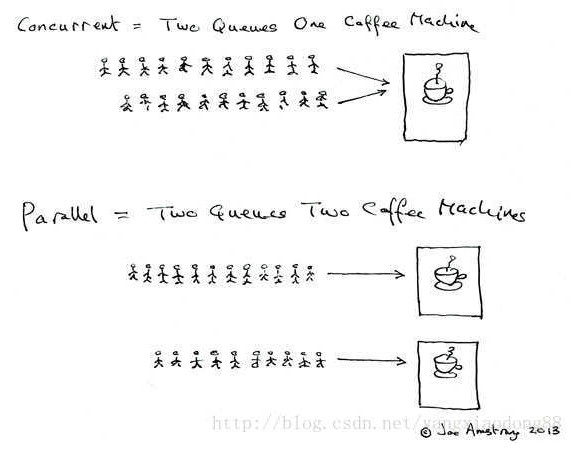 Concurrent = Two Queues One Coffee Machine
Parallel = Two Queues Two Coffee Machines
http://blog.csdn.net/yangxiaodong88
© Joe Armstrong 2013